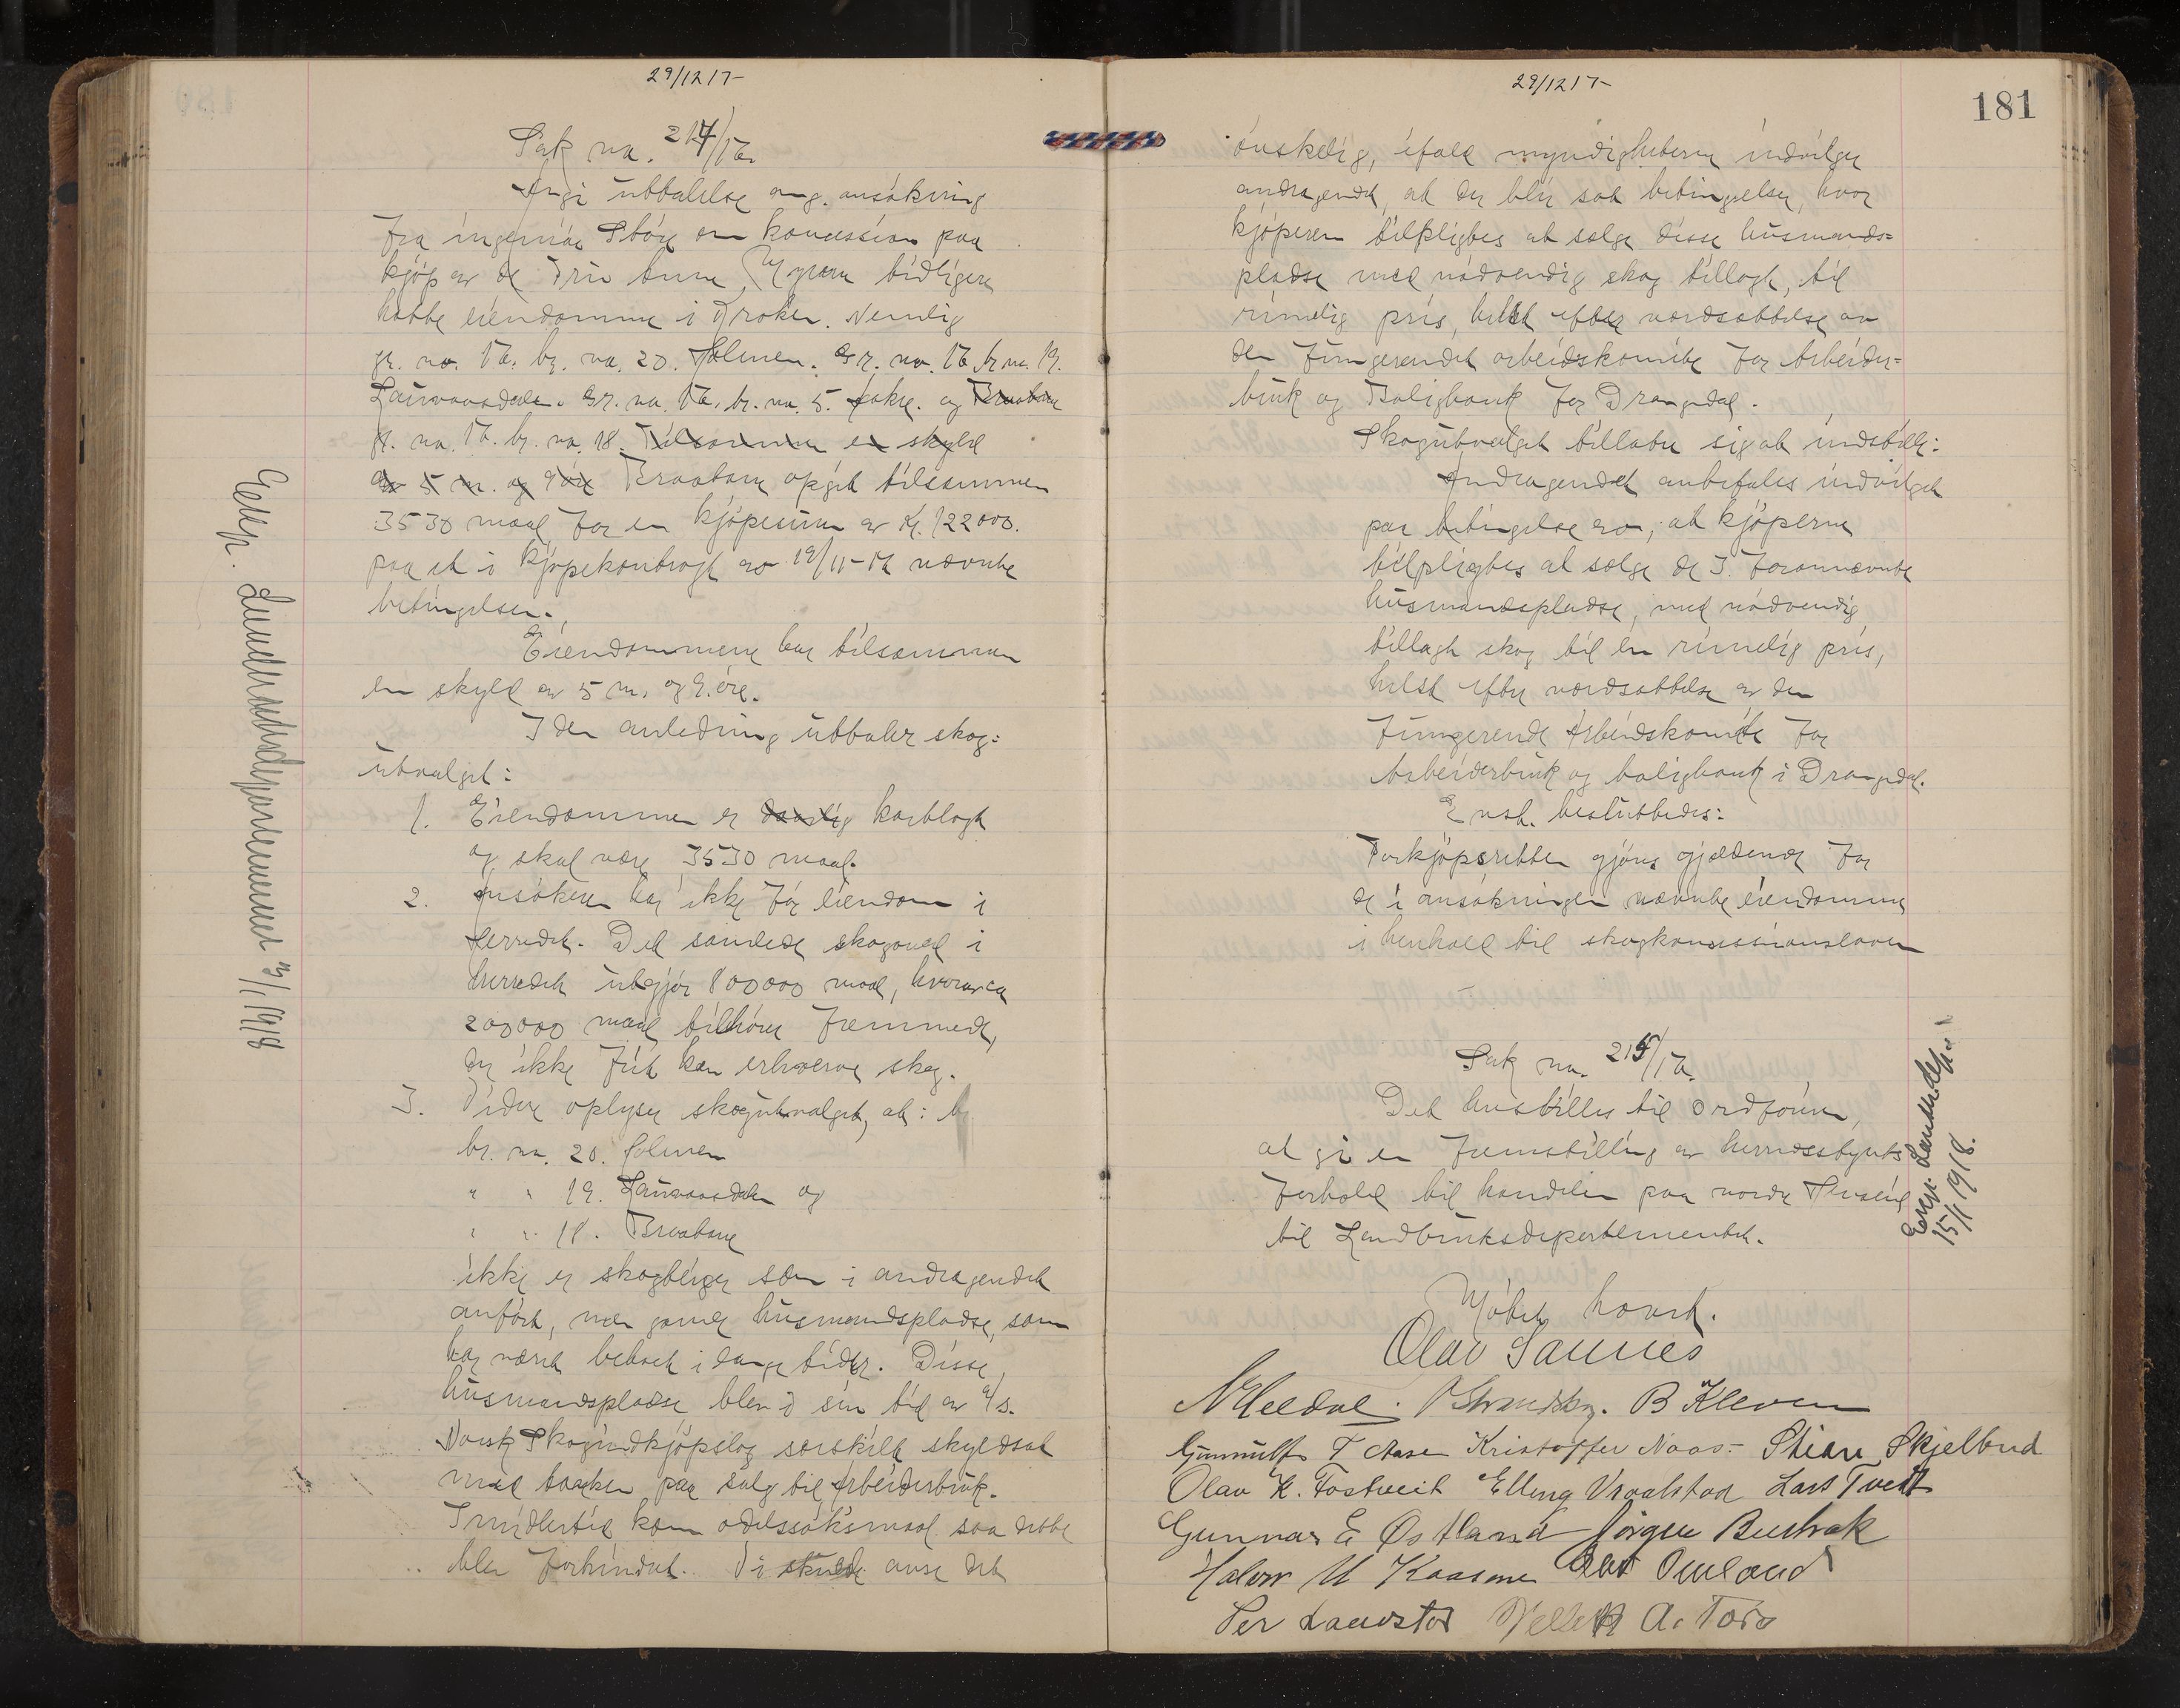 29/12 17-
Sak no. 214/17.
Angi uttalelse ang. ansökning
fra ingeniør Støre om koncession paa
kjøp av de Trin Anne Myrene tidligere
hatte eiendomme i Kroken. Nemlig
gr. no. 17. br. no. 20. Holmen. Gr. no. 17 br. no. 19.
Laurvaasdalen. Gr. no. 17. br. no. 5. og Braatane
gr. no. 17. br. no. 18. Tilsammen en skyld
av 5 m. og 9 øre Braatane opgit tilsammen
3530 maal for en kjøpesum av Kr. 122000.
paa et i kjøpekontragt av 19/11-17 nævnte
betingelser.
Eiendommene har tilsammen
en skyld av 5 m. og 9. øre.
I den anledning uttaler skog-
utvalget:
1. Eiendommen er daarlig kartlagt
og skal være 3530 maal.
2. Ansøkeren har ikke før eiendom i
herredet. Det samlede skogareal i
herredet utgjør 800000 maal, hvorav ca
200000 maal tilhører fremmede,
der ikke frit kan erhverve skog.
3. Videre oplyser skogutvalget, at:
br. no. 20. Holmen
" " 19. Laurvaasdalen og
" " 18. Braatane
ikke er skogteiger som i andragendet
anført, men gamle husmandspladse, som
har været bebodd i lange tider. Disse
husmandspladse blev i sin tid av A/s.
Norsk Skogindkjøpslag særskilt skyldsat
med tanken paa salg til Arbeiderbruk.
Imidlertid kom odelssøksmaal saa dette
blev forhindret. Vi skulde anse det
Eeksp. Landbruksdepartementet 3/1 1918
29/12 17-
181
ønskelig, ifald myndigheterne indvilger
andragendet, at der blir sat betingelser, hvor
kjøperen tilpligtes at sælge disse husmands-
pladse med nødvendig skog tillagt, til
rimelig pris, helst efter værdsættelse av
den fungerendet arbeidskomite for Arbeider-
bruk og Boligbank for Drangedal.
Skogutvalget tillater sig at indstille:
Andragendet anbefales indvilget
paa betingelse av, at kjøperne
tilpligtes at sælge de 3. forannævnte
husmandspladse, med nødvendig
tillagt skog til en rimelig pris,
helst efter værdsættelse av den
fungerende Arbeidskomite for
Arbeiderbruk og boligbank i Drangedal.
Enst. besluttedes:
Forkjøpsretten gjøres gjældende for
de i ansøkningen nævnte eiendomme
i henhold til skogkoncessionsloven
Sak no. 215/17.
Det henstilles til ordføreren,
at gi en fremstilling av herredsstyrets
forhold til handelen paa nordre
til Landbruksdepartementet.
Eksp. Landbr.dep.
15/1 1918.
Møtet hævet.
Olav Sannes
N Heldal. B Kleven
Gunnulf T Aasen Kristoffer Naas - Stean Skjelbred
Olav K. Tostveit Elling Vraalstad Lars Tvedt
Gunnar E Østland Jörgen Bustrak
Halvor M Kaasene Olav Omland
Per Landstad Kellek A. Torö